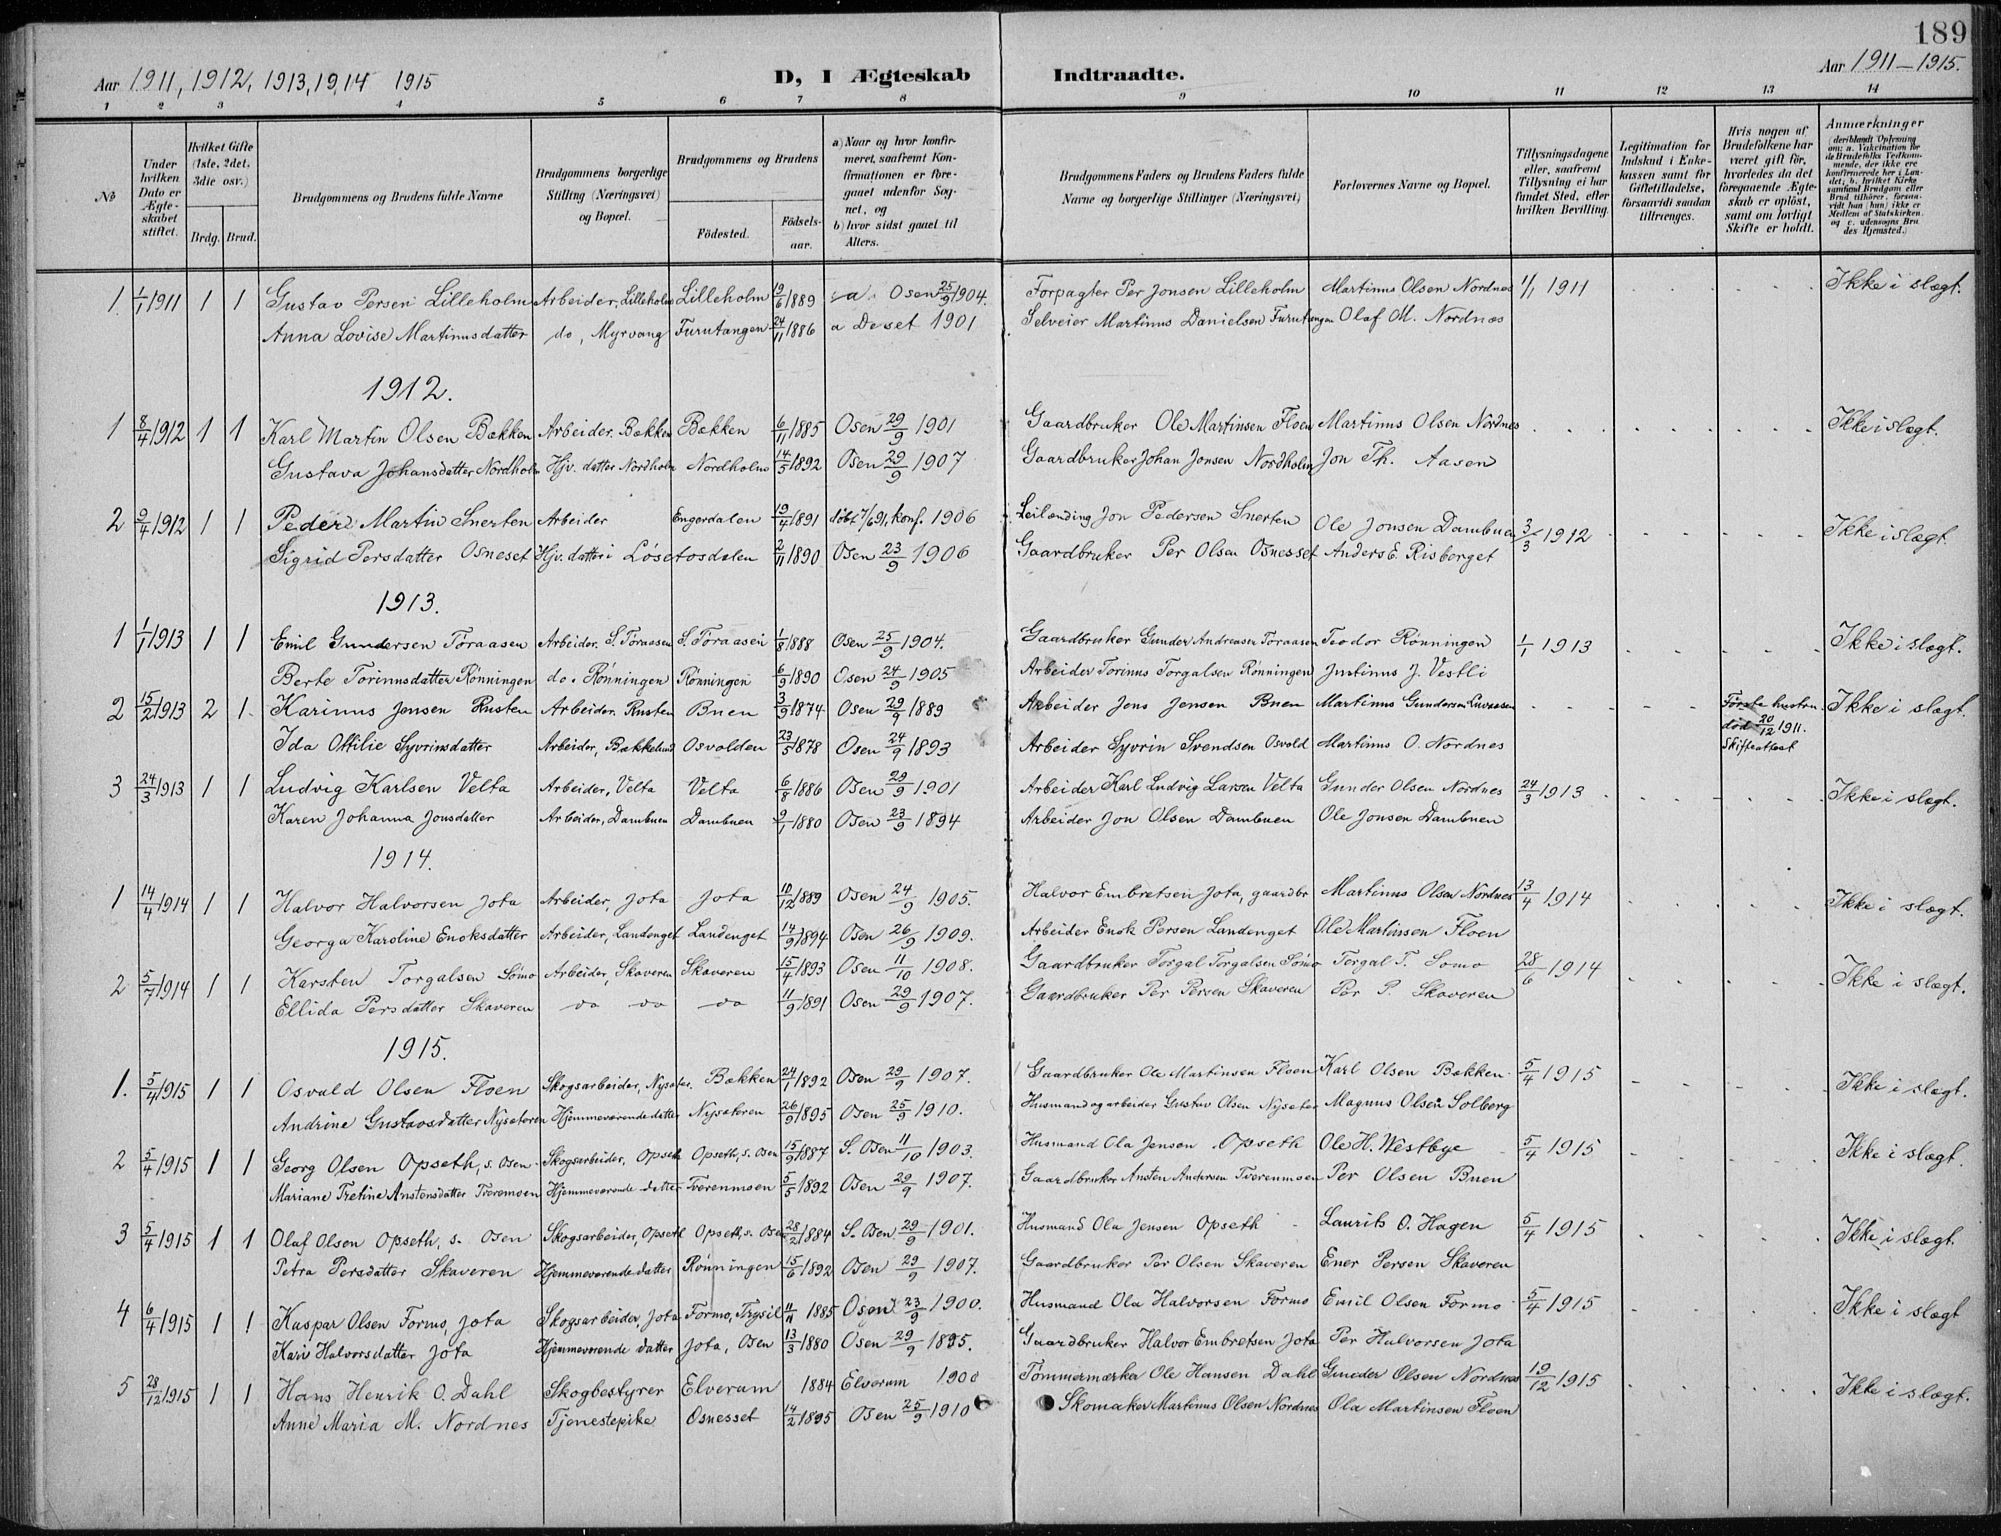 189
Aar 1911, 1912, 1913, 1914 1915
D, I Ægteskab Indtraadte.
Aar 1911–1915.
1 2 3 4 5 6 7 8 9 10 11 12 13 14
No
Under hvilken Dato er Ægteskabet stiftet.
Hvilket Gifte (1ste, 2det, 3die osv.)
Brdg. Brud.
Brudgommens og Brudens fulde Navne
Brudgommens borgerlige Stilling (Næringsvei) og Bopæl.
Brudgommens og Brudens
Fødested.
Fødselsaar.
a) Naar og hvor konfirmeret, saafremt Konfirmationen er foregaaet udenfor Sognet, og
b) hvor sidst gaaet til Alters.
Brudgommens Faders og Brudens Faders fulde Navne og borgerlige Stillinger (Næringsvei)
Forlovernes Navne og Bopæl.
Tillysningsdagene eller, saafremt Tillysning ei har fundet Sted, efter hvilken Bevilling.
Legitimation for Indskud i Enkekassen samt for Giftetilladelse, forsaavidt saadan tiltrænges.
Hvis nogen af Brudefolkene har været gift før, hvorledes da det foregaaende Ægteskab er opløst, samt om lovligt Skifte er holdt.
Anmærkninger (deriblandt Oplysning om: a. Vakcination for de Brudefolks Vedkommende, der ikke ere konfirmerede her i Landet; b. hvilket Kirkesamfund Brudgom eller Brud tilhører, forsaavidt han (hun) ikke er Medlem af Statskirken, og c. udensogns Brudes Hjemsted.)
1 1/1 1911 1 1 Gustav Persen Lilleholm Arbeider, Lilleholm Lilleholm 19/6 1889 a. Osen 25/9 1904. Forpagter Per Jonsen Lilleholm Martinus Olsen Nordnes 1/1 1911 Ikke i slægt.
Anna Lovise Martinusdatter do, Myrvang Furutangen 24/11 1886 a Deset 1901 Selveier Martinus Danielsen Furutangen Olaf M. Nordnæs
1912.
1 8/4 1912 1 1 Karl Martin Olsen Bækken Arbeider. Bækken Bækken 6/11 1885 Osen 29/9 1901 Gaardbruker Ole Martinsen Floen Martinus Olsen Nordnes Ikke i slægt.
Gustava Johansdatter Nordholm Hjv. datter Nordholm Nordholm 14/5 1892 Osen 29/9 1907 Gaardbruker Johan Jonsen Nordholm Jon Th. Aasen
2 9/4 1912 1 1 Peder Martin Snerten Arbeider Engerdalen 19/4 1891 døbt 7/6 91, konf. 1906 Leilænding Jon Pedersen Snerten Ole Jonsen Dambuen 3/3 1912 Ikke i slægt.
Sigrid Persdatter Osneset Hjv. datter i Løsetosdalen 2/11 1890 Osen 23/9 1906 Gaardbruker Per Olsen Osnesset Anders E. Risberget
1913.
1 1/1 1913 1 1 Emil Gundersen Tøraasen Arbeider. S. Tøraasen S. Tøraasen 1/8 1888 Osen 25/9 1904. Gaardbruker Gunder Andreasen Toraasen Teodor Rønningen 1/1 1913 Ikke i slægt.
Berte Torinusdatter Rønningen do. Rønningen Rønningen 6/9 1890 Osen 24/9 1905 Arbeider Torinus Torgalsen Rønningen Justinus J. Vestli
2 15/2 1913 2 1 Karinus Jensen Rusten Arbeider, Rusten Buen 3/9 1874 Osen 29/9 1889 Arbeider Jens Jensen Buen Martinus Gundersen Første hustru død 20/12 1911. Skifteattest Ikke i slægt.
Ida Otilie Syvrinsdatter Arbeider, Bækkelund Osvolden 23/5 1878 Osen 24/9 1893 Arbeider Syvrin Svendsen Osvold Martinus O. Nordnes
3 24/3 1913 1 1 Ludvig Karlsen Velta Arbeider, Velta Velta 6/8 1886 Osen 29/9 1901 Arbeider Karl Ludvig Larsen Velta Gunder Olsen Nordnes 24/3 1913 Ikke i slægt.
Karen Johanna Jonsdatter Arbeider, Dambuen Dambuen 9/1 1880 Osen 23/9 1894 Arbeider Jon Olsen Dambuen Ole Jonsen Dambuen
1914.
1 14/4 1914 1 1 Halvor Halvorsen Jota Arbeider, Jota Jota 10/12 1889 Osen 24/9 1905. Halvor Embretsen Jota, gaardbr Martinus Olsen Nordnes 13/4 1914 Ikke i slægt.
Georga Karoline Enoksdatter Arbeider, Landenget Landenget 14/9 1894 Osen 26/9 1909. Arbeider Enok Persen Landenget Ole Martinsen Floen
2 5/7 1914 1 1 Karsten Torgalsen Sømo Arbeider, Skaveren Skaveren 15/4 1893 Osen 11/10 1908. Gaardbruker Torgal Torgalsen Sømo Torgal T. Somo 28/6 1914 Ikke i slægt.
Ellida Persdatter Skaveren do do do 11/9 1891 Osen 29/9 1907. Gaardbruker Per Persen Skaveren Per P. Skaveren
1915.
1. 5/4 1915 1 1 Osvald Olsen Floen Skogsarbeider, Nysæter. Bækken 24/1 1892 Osen 29/9 1907. Gaardbruker Ole Martinsen Floen Karl Olsen Bækken 5/4 1915 Ikke i slægt.
Andrine Gustavsdatter Nysæteren Hjemmeværende datter Nysæteren 26/9 1895 Osen 25/9 1910. Husmand og arbeider Gustav Olsen Nysæter Magnus Olsen Solberg
2 5/4 1915 1 1 Georg Olsen Opseth, s. Osen Skogsarbeider, Opseth Opseth, s. Osen 15/9 1887 S. Osen 11/10 1903. Husmand Ola Jensen Opseth Ole H. Westbye 5/4 1915 Ikke i slægt.
Mariane Tretine Anstensdatter Tveremoen Hjemmeværende datter Tverenmoen 5/5 1892 Osen 29/9 1907. Gaardbruker Ansten Andersen Tverenmoen Per Olsen Buen
3 5/4 1915 1 1 Olaf Olsen Opseth, s. Osen Skogsarbeider, Opseth Opseth, s. Osen 28/2 1884 S. Osen 29/9 1901. Husmand Ola Jensen Opseth Laurits O. Hagen 5/4 1915 Ikke i slægt.
Petra Persdatter Skaveren Hjemmeværende datter Rønningen 15/6 1892 Osen 29/9 1907. Gaardbruker Per Olsen Skaveren Ener Persen Skaveren
4 6/4 1915 1 1 Kaspar Olsen Formo, Jota Skogsarbeider, Jota Formo, Trysil 11/11 1885 Osen 23/9 1900. Husmand Ola Halvorsen Formo Emil Olsen Formo 5/4 1915 Ikke i slægt
Kari Halvorsdatter Jota Hjemmeværende datter Jota, Osen 13/3 1880 Osen 29/9 1895. Gaardbruker Halvor Embretsen Jota Per Halvorsen Jota
5 28/12 1915 1 1 Hans Henrik O. Dahl Skogbestyrer Elverum 1884 Elverum 1900 Tømmermærker Ole Hansen Dahl Gunder Olsen Nordnes 19/12 1915 Ikke i slægt.
Anne Maria M. Nordnes Tjenestepike Osnesset 14/2 1895 Osen 25/9 1910 Skomaker Martinus Olsen Nordnes Ola Martinsen Floen